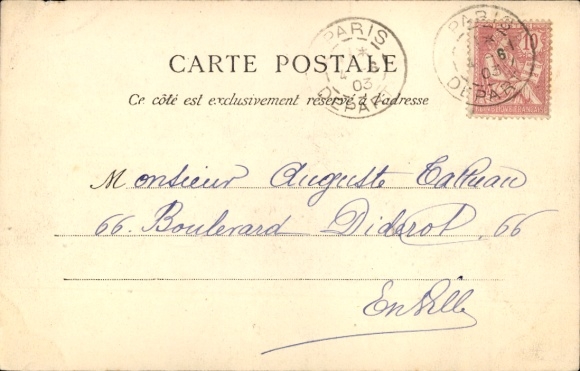 CARTE POSTALE
Ce côté est exclusivement réservé à l'adresse
PARIS
4 6
03
DEPART
PARIS
6
03
DEPART
10
Monsieur Auguste
66. Boulevard Diderot, 66
En Ville